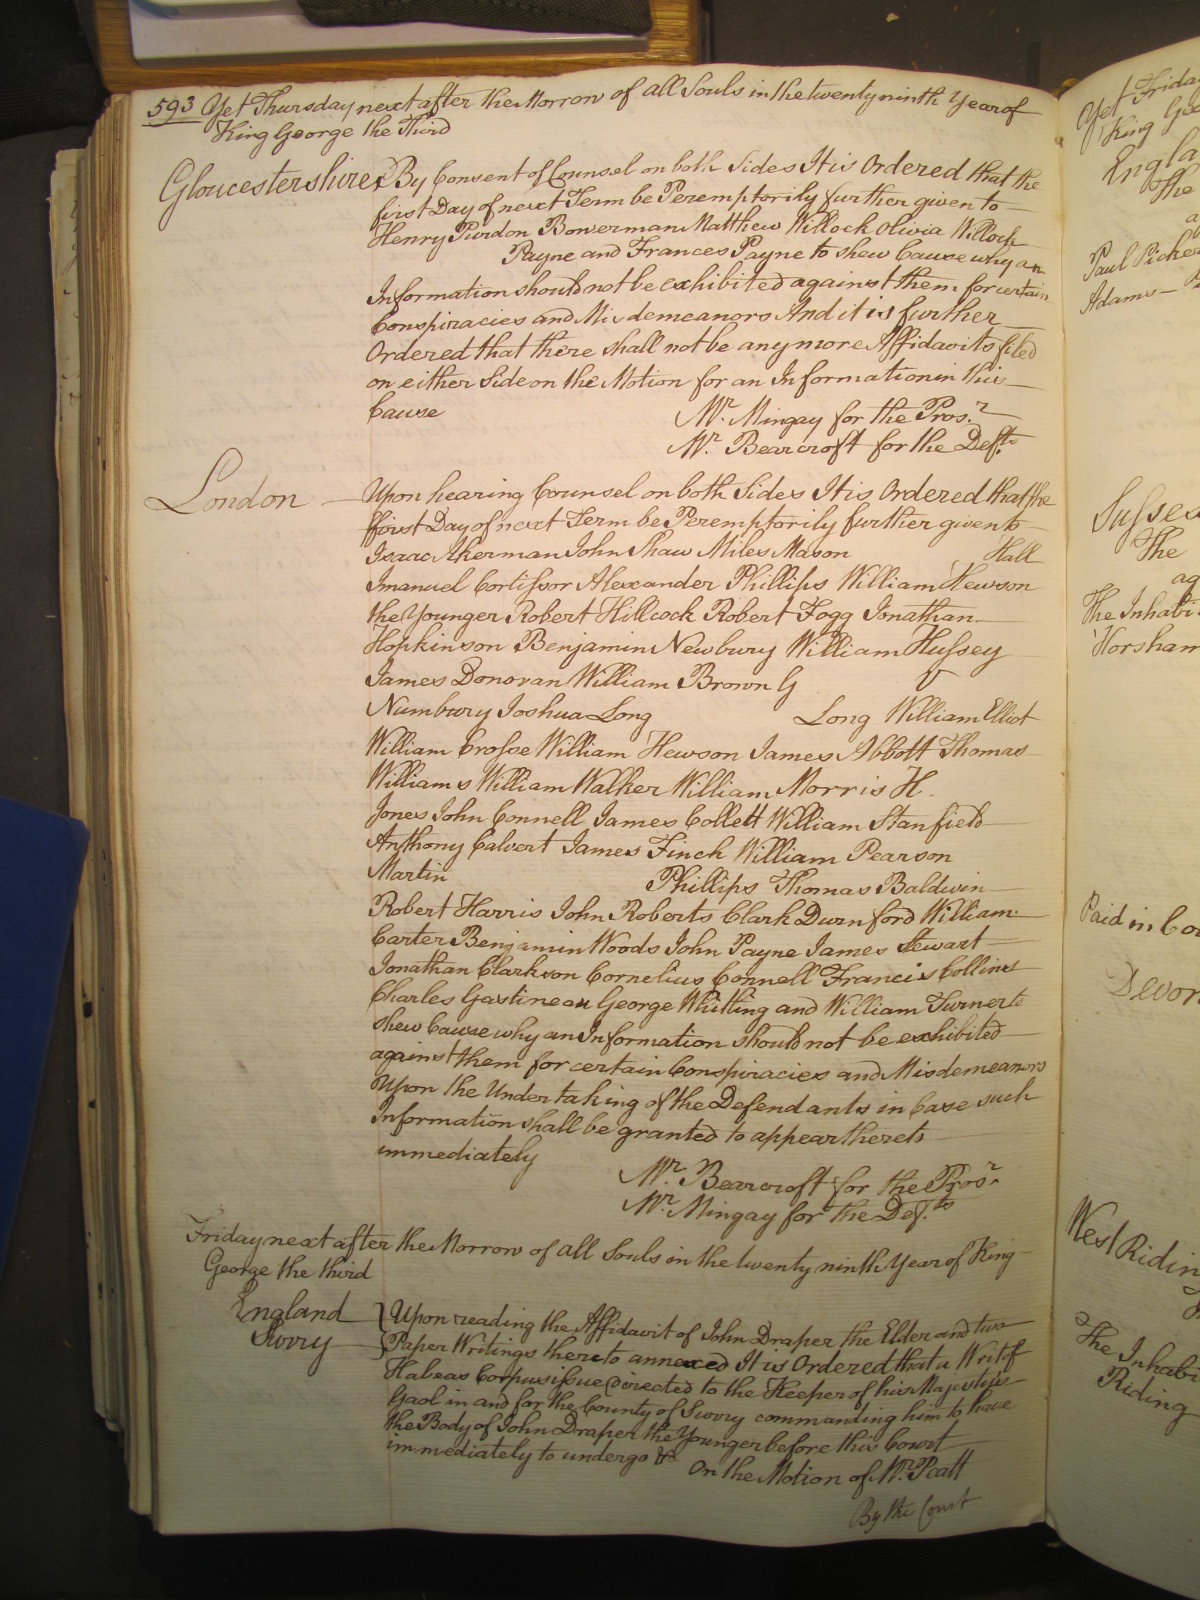 593 Yet Thursday next after the Morrow of all Souls in the twenty ninth Year of
King George the Third
Gloucestershire } By Consent of Counsel on both Sides It is Ordered that the
first Day of next Term be Peremptorily further given to
Henry Purdon Bowerman Matthew Willock Olivia Willock
Payne and Frances Payne to shew Cause why an
Information should not be exhibited against them for certain
Conspiracies and Misdemeanors And it is further
Ordered that there shall not be any more Affidavits filed
on either Side on the Motion for an Information in this
Cause
Mr. Mingay for the Prosr.
Mr. Bearcroft for the Defts.
London Upon hearing Counsel on both Sides It is Ordered that the
first Day of next Term be Peremptorily further given to
Isaac Akerman John Shaw Miles Mason Hall
Imanuel Cortissor Alexander Phillips William Hewson
the Younger Robert Hillcock Robert Fogg Jonathan
Hopkinson Benjamin Newbury William Hussey
James Donovan William Brown G V
Numbury Joshua Long Long William Elliot
William Crosse William Hewson James Abbott Thomas
Williams William Walker William Morris H.
Jones John Connell James Collett William Stanfield
Anthony Calvert James Finch William Pearson
Martin Phillips Thomas Baldwin
Robert Harris John Roberts Clark Durnford William
Carter Benjamin Woods John Payne James Stewart
Jonathan Clarkson Cornelius Connell Francis Collins
Charles Gastineau George Whitling and William Turner to
shew Cause why an Information should not be exhibited
against them for certain Conspiracies and Misdemeanors
Upon the Undertaking of the Defendants in Case such
Information shall be granted to appear thereto
immediately
Mr. Bearcroft for the Prosr.
Mr. Mingay for the Defts.
Friday next after the Morrow of all Souls in the twenty ninth Year of King
George the third
England } Upon reading the Affidavit of John Draper the Elder and two
Surry } Paper Writings thereto annexed It is Ordered that a Writ of
Habeas Corpus issue directed to the Keeper of his Majestys
Gaol in and for the County of Surry commanding him to have
the Body of John Draper the Younger before this Court
immediately to undergo &c.
On the Motion of Mr. Platt
By the Court
Yet Friday
King Geo
Engla
The
ag
Paul Picker
Adams
Sussex
The
ag
The Inhabi
Horsham
Paid in Cou
Devon
West Riding
The Inhabi
Riding